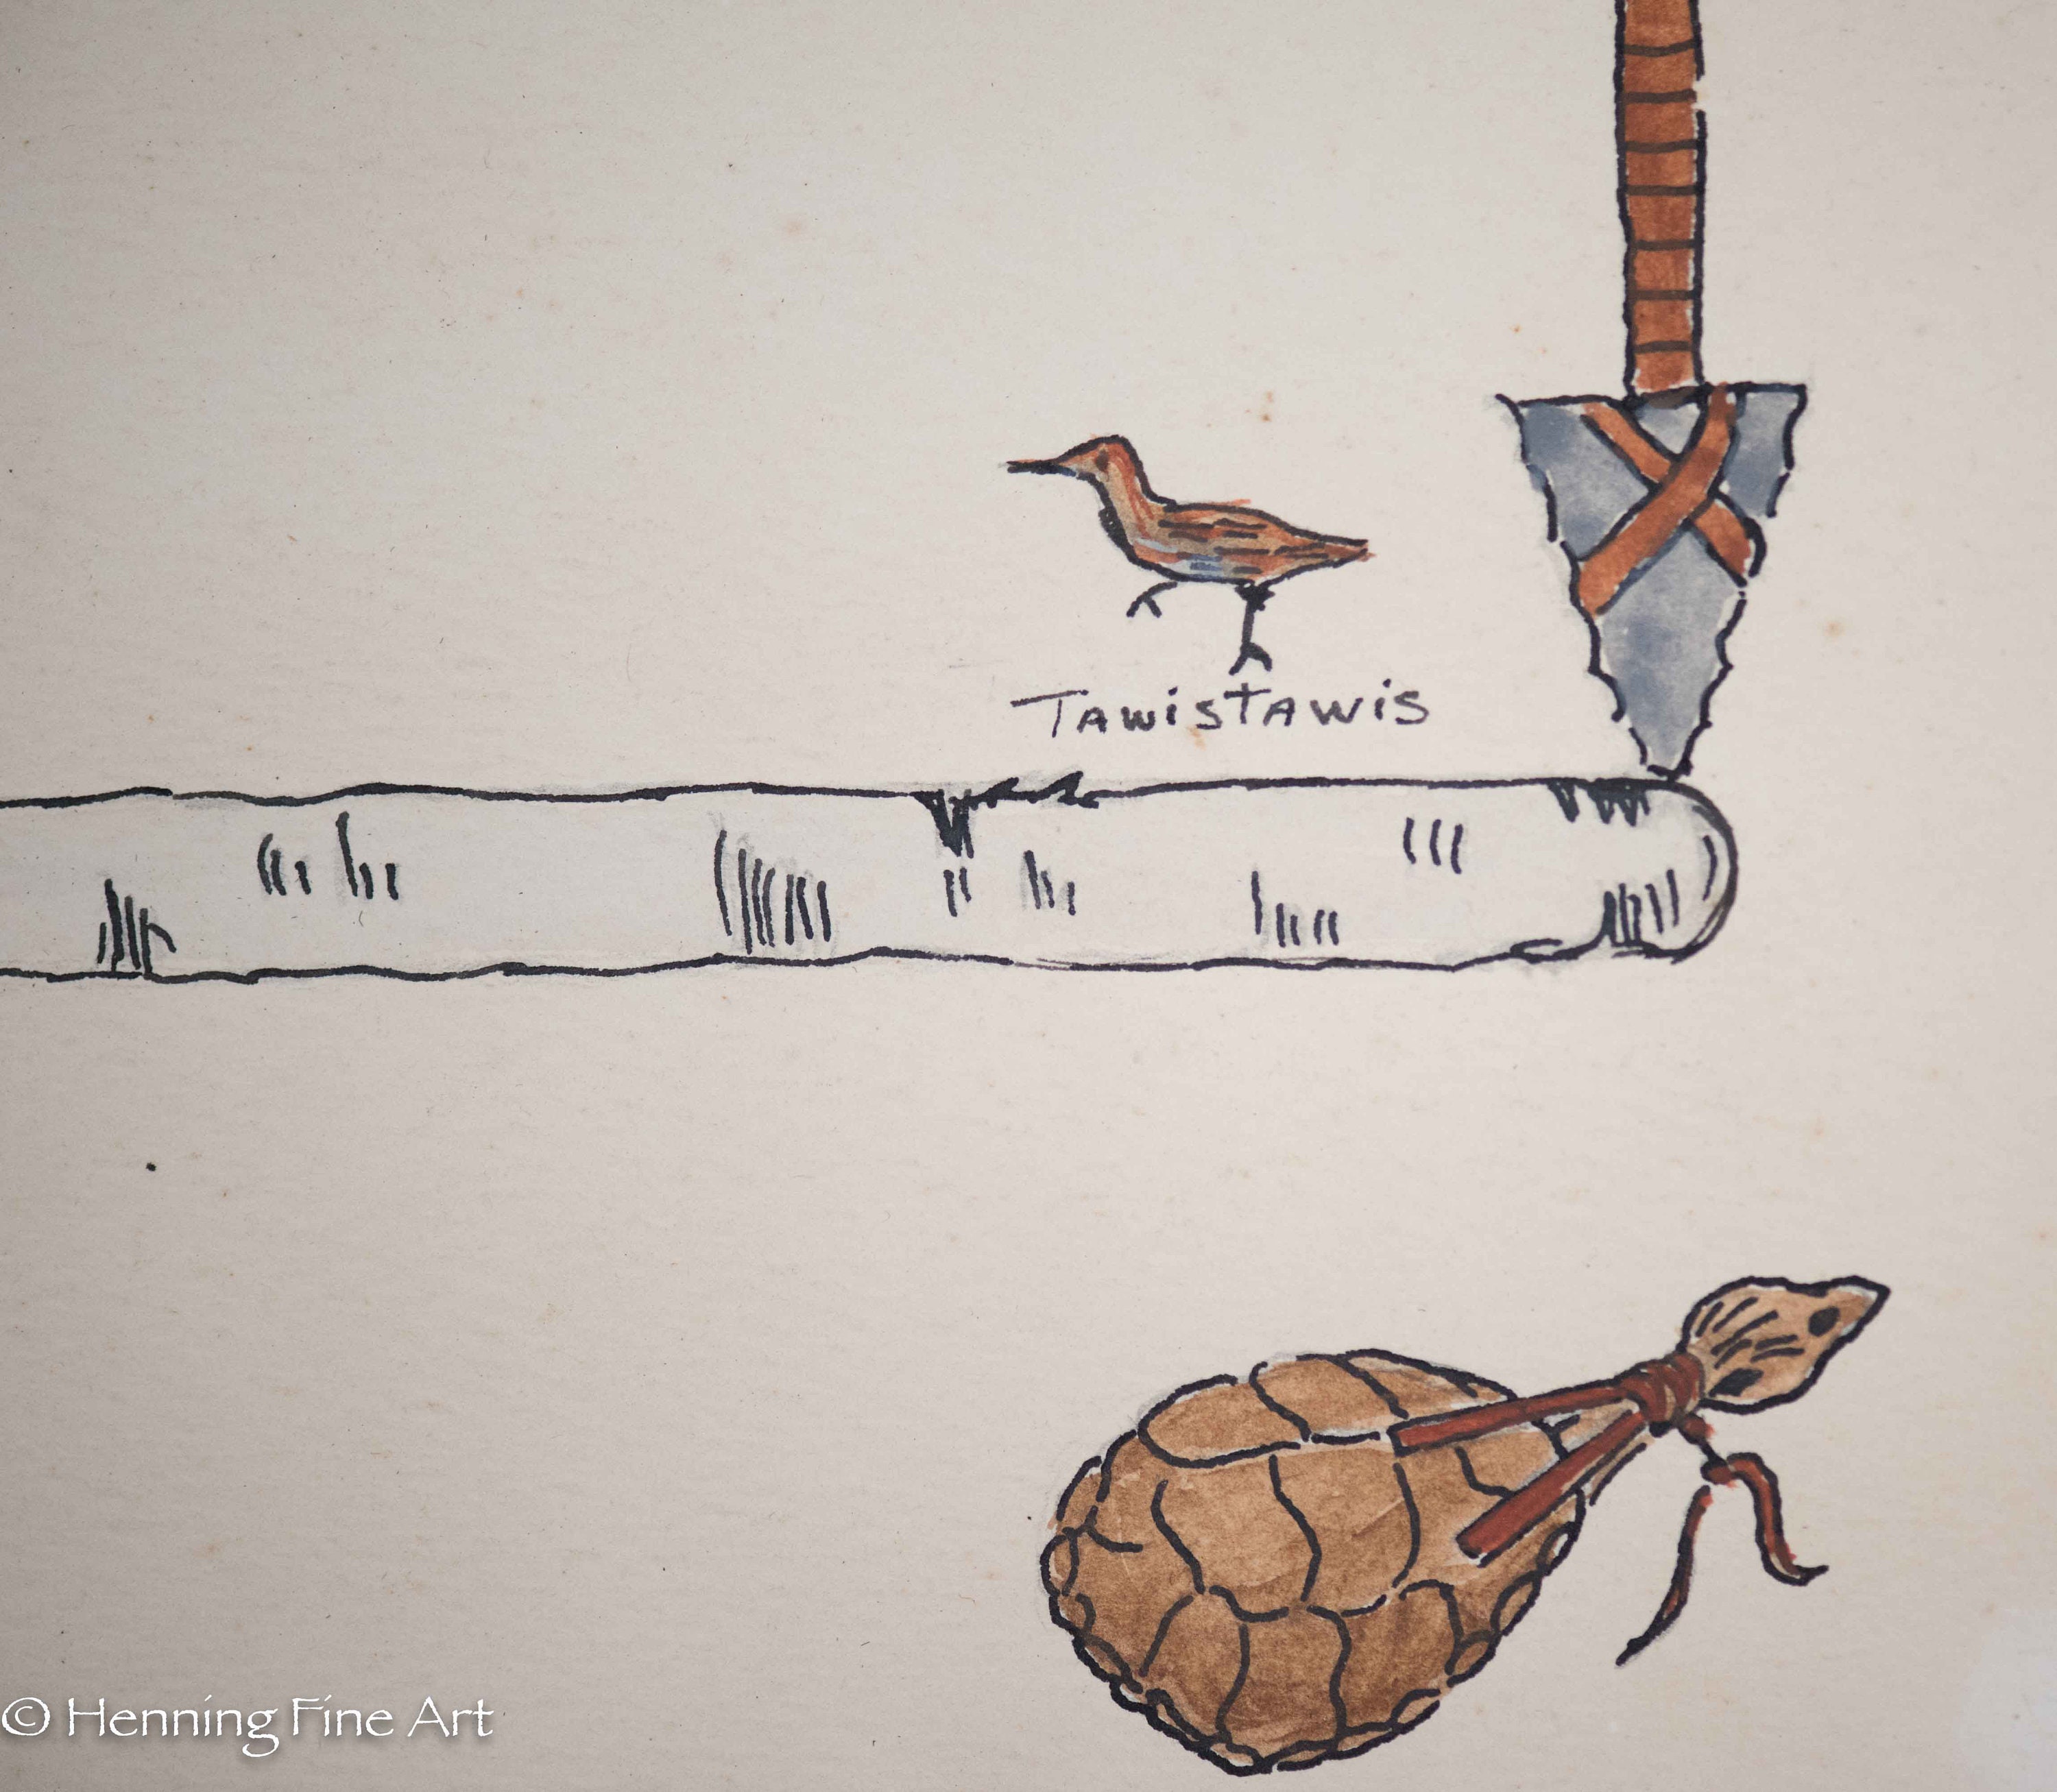 Tawistawis
© Henning Fine Art